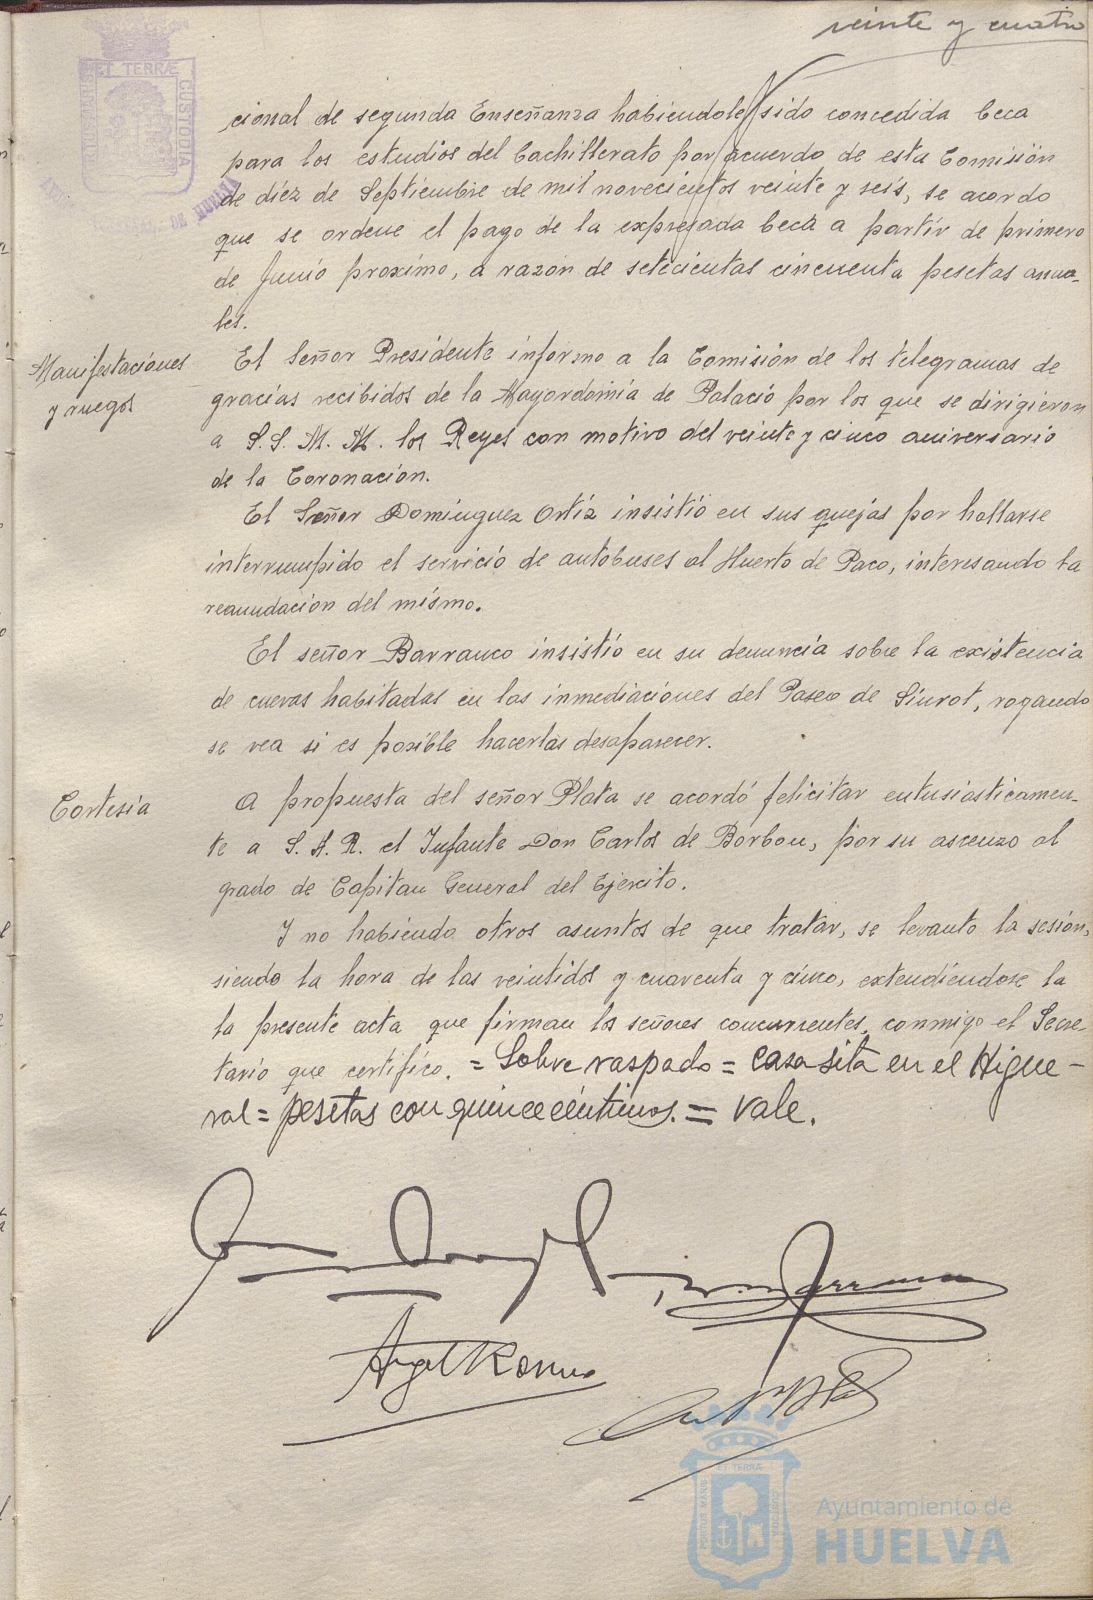 veinte y cuatro
cional de segunda Enseñanza habiendole sido concedida beca
para los estudios del bachillerato por acuerdo de esta Comisión
de diez de Septiembre de mil novecientos veinte y seis, se acordo
que se ordene el pago de la expresada beca a partir de primero
de Junio proximo, a razón de setecientas cincuenta pesetas anua-
les.
Manifestaciones
y ruegos
El Señor Presidente informo a la Comisión de los telegramas de
gracias recibidos de la Mayordomia de Palacio por los que se dirigieron
a S.S. M. M. los Reyes con motivo del veinte y cinco aniversario
de la Coronación.
El Señor Dominguez Ortiz insistió en sus quejas por hallarse
interrumpido el servicio de autobuses al Huerto de Paco, interesando la
reanudacion del mismo.
El señor Barranco insistió en su denuncia sobre la existencia
de cuevas habitadas en las inmediaciones del Paseo de Siurot, rogando
se vea si es posible hacerlas desaparecer.
Cortesia
A propuesta del señor Plata se acordó felicitar entusiasticamen-
te a S. A. R. el Infante Don Carlos de Borbon, por su ascenzo al
grado de Capitan General del Ejercito.
Y no habiendo otros asuntos de que tratar, se levanto la sesión,
siendo la hora de las veintidos y cuarenta y cinco, extendiéndose la
la presente acta que firman los señores concurrentes, conmigo el Secre-
tario que certifico. = Sobre raspado = casa sita en el Higue-
ral = pesetas con quince céntimos. = Vale.
Angel Romero
Ayuntamiento de
HUELVA
ET TERRÆ
CUSTODIA